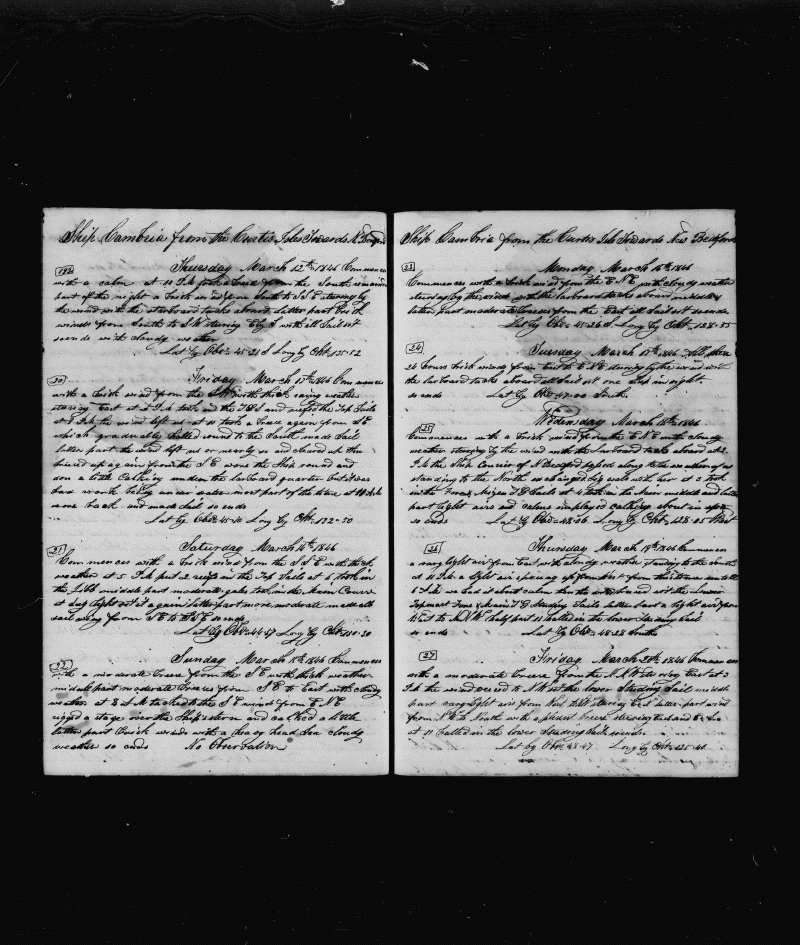 Ship Cambria from the Curtis Isles Towards N Bedford
Thursday March 12th 1846 Commences
with a calm at 11 P.M. took a breeze from the South remainder
part of the night a brisk wind from South to S S E steering by
the wind with the starboard tacks aboard latter part brisk
winds from South to S W steering E by S with all Sail set
so ends with cloudy weather
Lat by Obs 45-21 S Long by Cht 175-52
20
Friday March 13th 1846 Commences
with a brisk wind from the with thick rainy weather
steering East at 2 P.M. took in the T G S and reefed the Top Sails
at the wind left us at 10 took a breeze again from S E
which gradually hauled round to the South made Sail
latter part the wind left us or nearly so and cleared up then
breezed up again from the S E wore the Ship round and
don a little Calking under the larboard quarter but it was
bad work being under water most part of the time at
wore back and made Sail so ends
Lat by Obs Long by Cht 172-50
21
Saturday March 14th 1846
Commences with a brisk wind from the S S E with thick
weather at 5 P.M. put 2 reefs in the Top Sails at 6 took in
the Jibb middle part moderate gales took in the Main Course
at day light set it again latter part more moderate made all
sail wind from S E to so ends
Lat by Obs 44-57 Long by Cht
22
Sunday March 15th 1846 Commences
with a moderate breeze from the S E with thick weather
middle part moderate breezes from S E to East with cloudy
weather at 8 A.M. tacked to the S E wind from E N E
rigged a stage over the Ships stern and calked a little
latter part brisk winds with a heavy head Sea cloudy
weather so ends No Observation
Ship Cambria from the Curtis Isle Towards New Bedford
23
Monday March 16th 1846
Commences with a brisk wind from the E N E with cloudy weather
steering by the wind with the larboard tacks aboard middle &
latter part moderate breezes from the East all Sail set so ends
Lat by Obs 45-26 S Long by Cht
24
Tuesday March 17th 1846 All these
24 hours brisk winds from East to E N E steering by the wind with
the larboard tacks aboard all Sail set one Ship in sight
so ends Lat by Obs 47-00 South
25
Wednesday March 18th 1846
Commences with a brisk wind from the E N E with cloudy
weather steering by the wind with the larboard tacks aboard at 2
P.M. the Ship Courier of N Bedford passed along to the weather of us
standing to the North exchanged signals with her at 3 took
in the Fore & Mizen T G Sails at 4 took in the Main middle and latter
part light airs and calms employed calking about in
so ends Lat by Obs 48-06 Long by Cht West
26
Thursday March 19th 1846 Commences
a very light air from East with cloudy weather standing to the South
at 11 P.M. a light air springs up from
6 P.M. we had it about calm then the wind set the Lower
Topmast Fore & Main T G Studding Sails latter part a light air from
West to N W half past 11 hailed in the lower
so ends Lat by Obs 48-28 South
27
Friday March 20th 1846 Commences
with a moderate breeze from the N N W steering East at 3
P.M. the wind veered to N W set the lower Studing Sail middle
part very light airs from West latter part wind
from N W to North with a pleasant breeze steering East and
at 11 halled in the lower Studding Sail so ends
Lat by Obs 48-47 Long by Cht